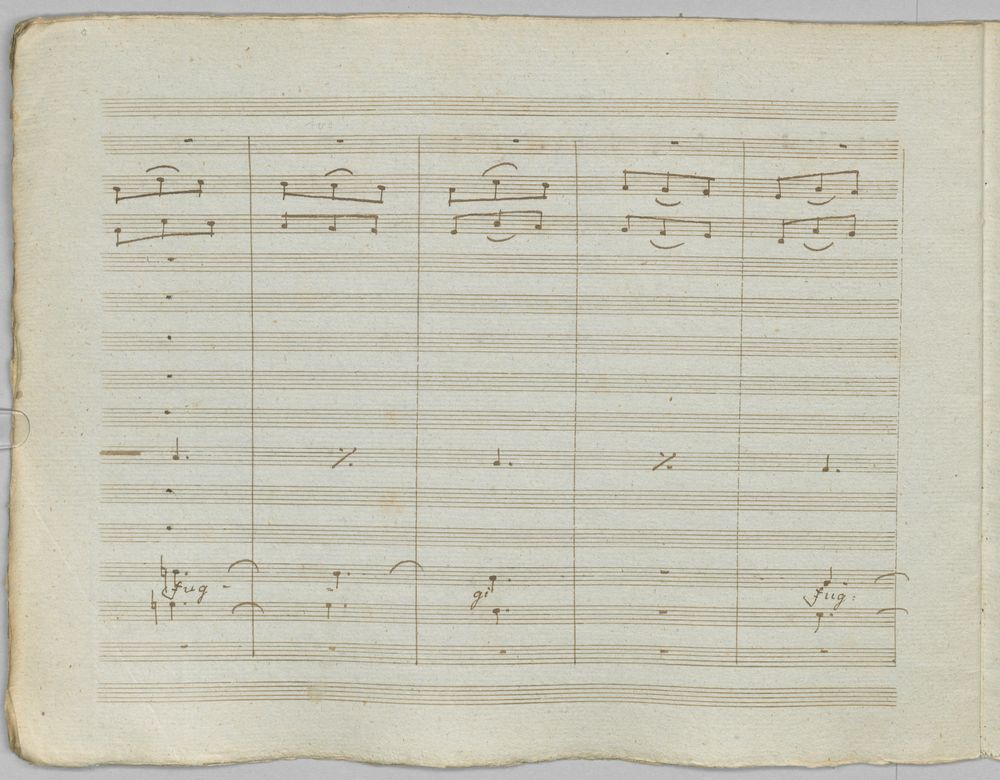 fug -
gi
fug: